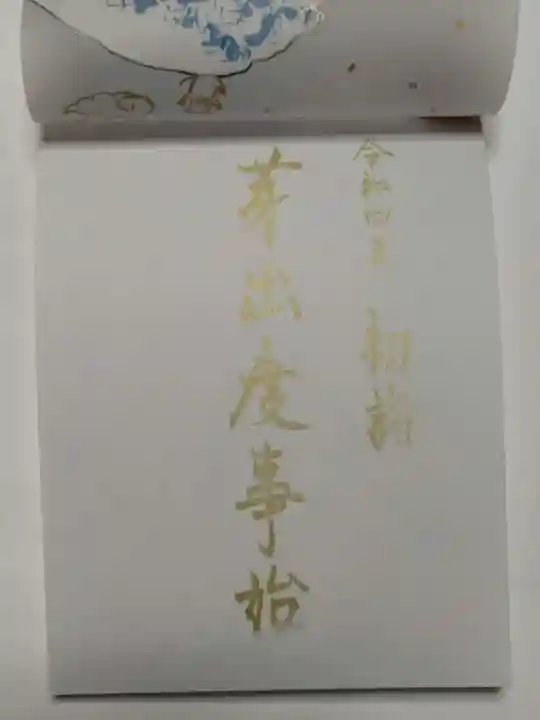 令和四年 初詣
芽出度事始